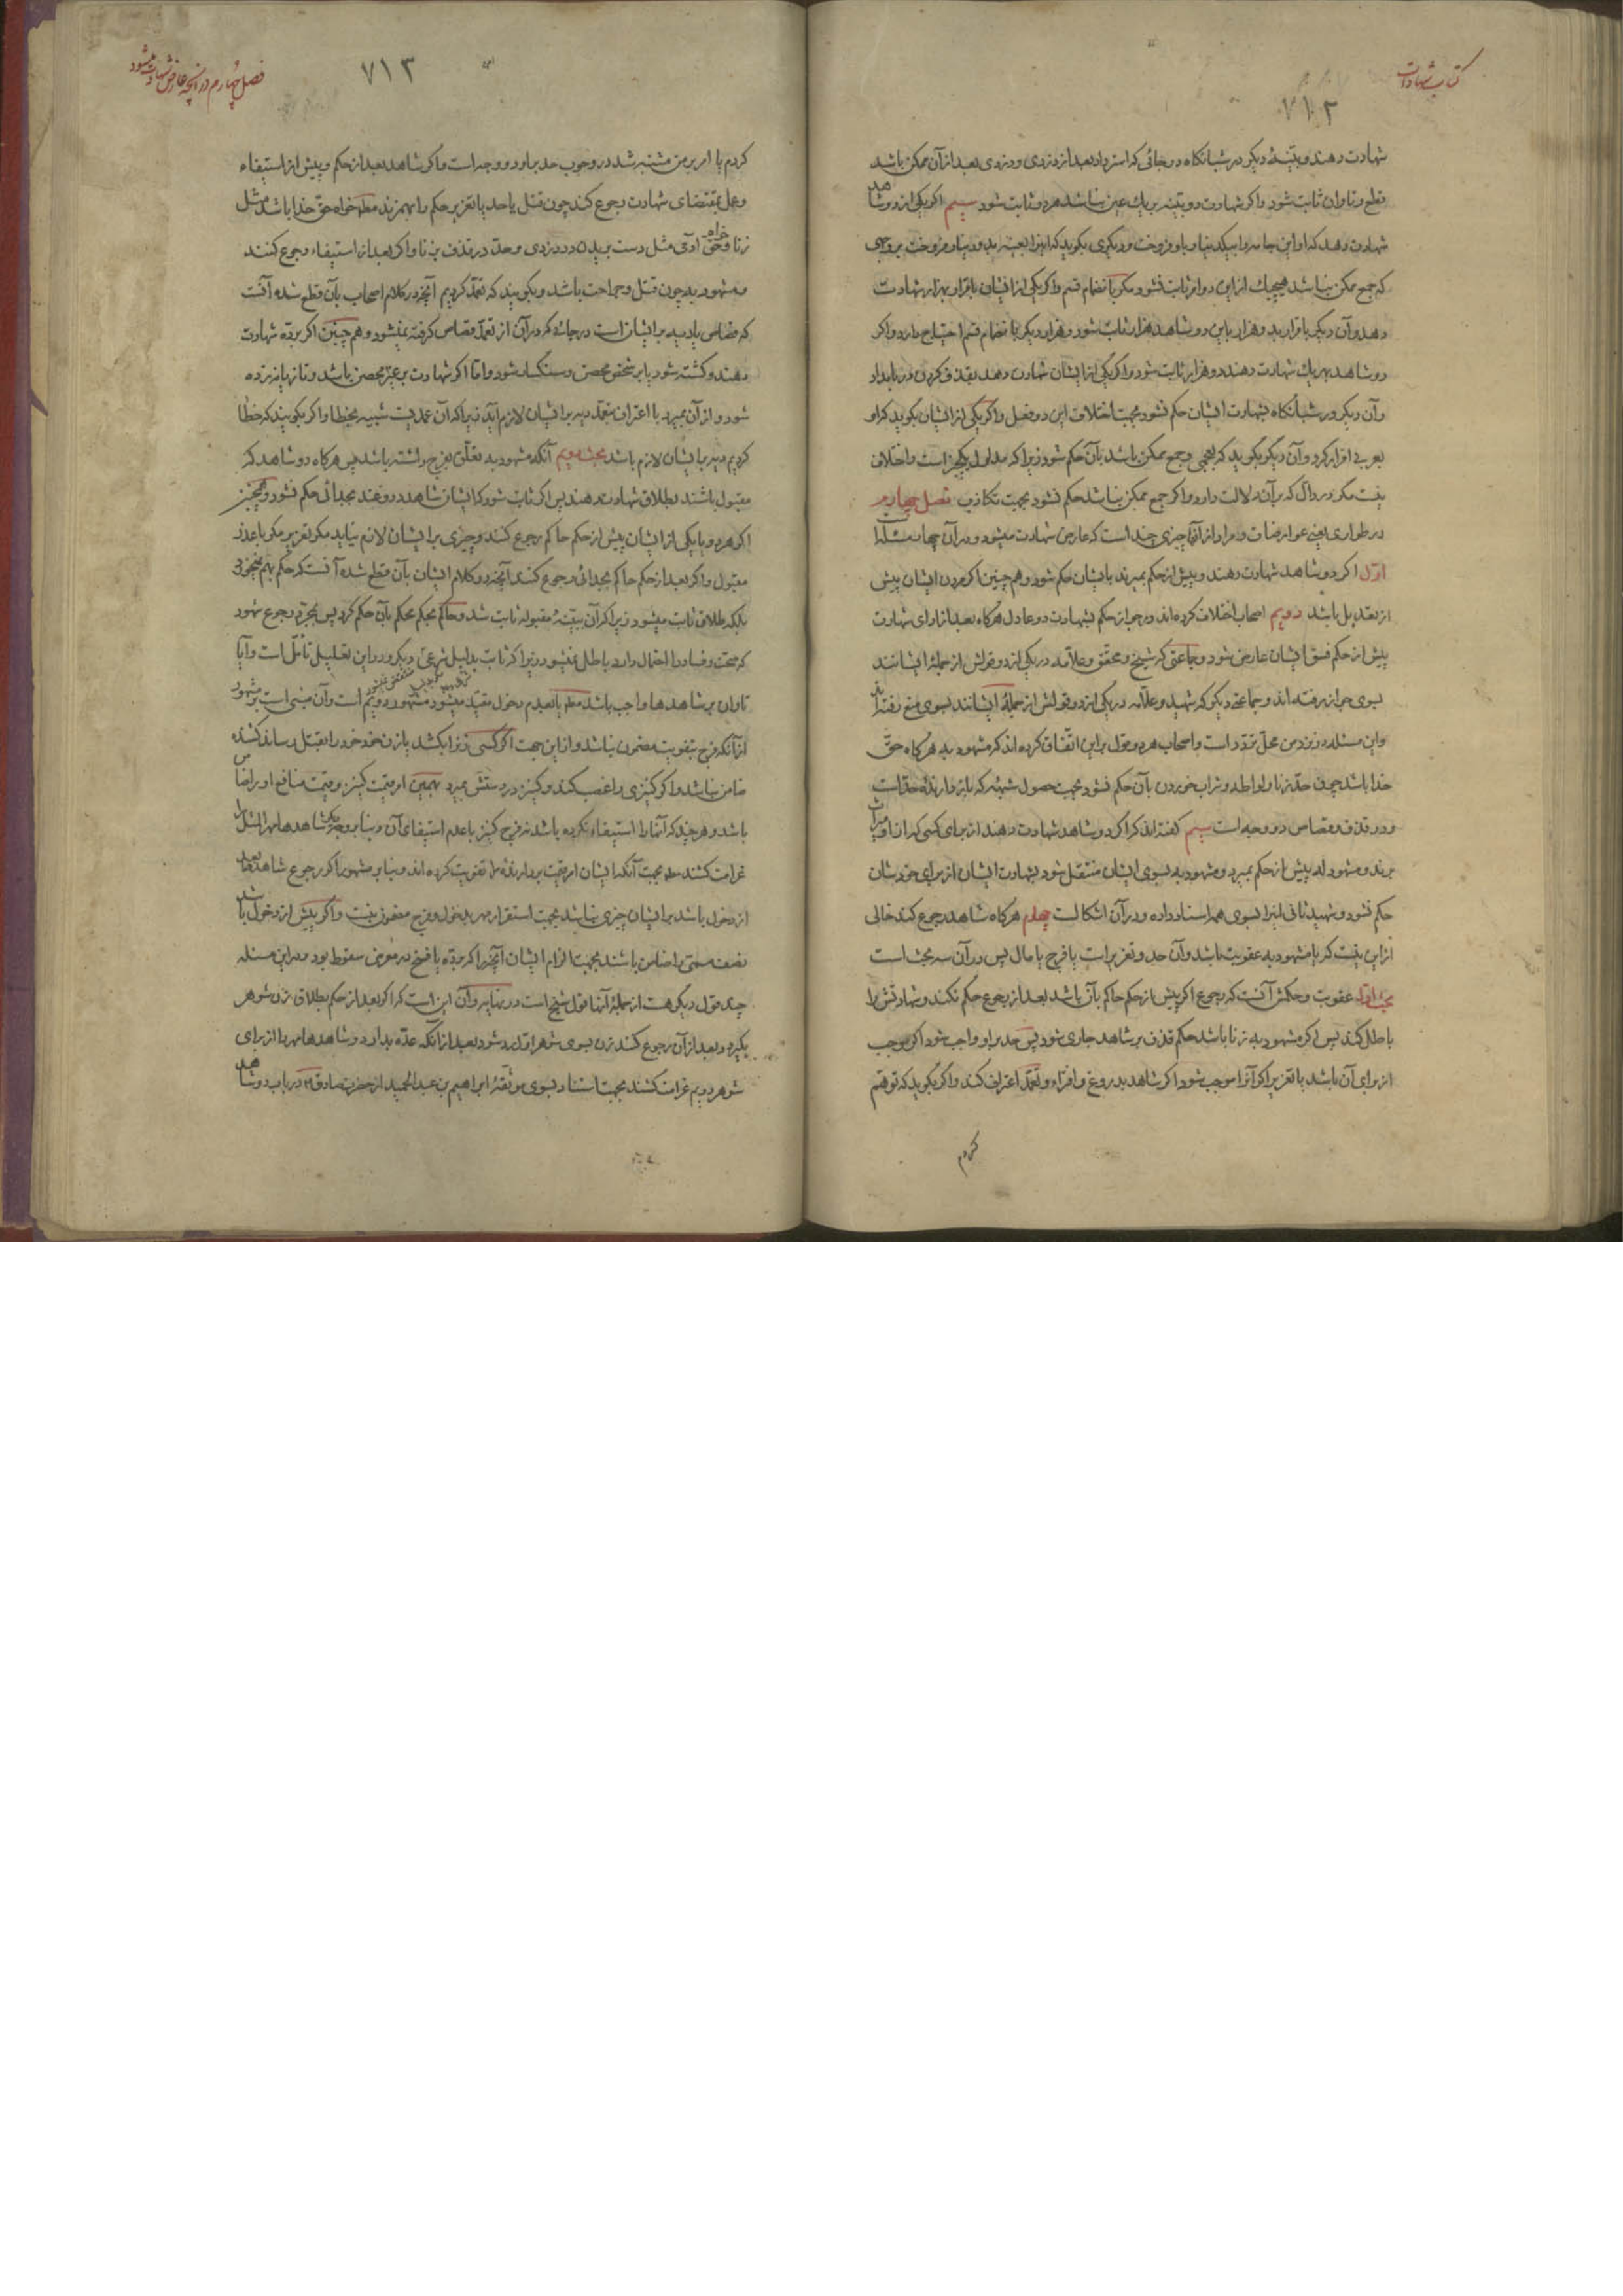 کتاب شهادات
۷۱۲
شهادت دهند و بینهٔ دیگر در شبانگاه در جائی که استرداد بعد از دزدی و دزدی بعد از آن ممکن باشد
قطع و تاوان ثابت شود و اگر شهادت دو بینه بر یک عین باشد هر دو ثابت شود سیم اگر یکی از دو شاهد
شهادت دهد که او این جامه را بیکدینار باو فروخت و دیگری بگوید که اینرا بعینه بدو دینار فروخت بروجهی
که جمع ممکن نباشد هیچیک از این دو امر ثابت نشود مگر بانضمام قسم و اگر یکی از ایشان باقرار بهزار شهادت
دهد و آن دیگر باقرار بدو هزار باین دو شاهد هزار ثابت شود و هزار دیگر بانضمام قسم احتیاج دارد و اگر
دو شاهد بهر یک شهادت دهند دو هزار ثابت شود و اگر یکی از ایشان شهادت دهد بقذف کردن در بامداد
و آن دیگر در شبانگاه بشهادت ایشان حکم نشود بجهت اختلاف این دو فعل و اگر یکی از ایشان بگوید که او
بعربی اقرار کرد و آن دیگر بگوید که بعجمی و جمع ممکن باشد بآن حکم شود زیرا که مدلول یکچیز است و اختلاف
نیست مگر در دالّ که بر آن دلالت دارد و اگر جمع ممکن نباشد حکم نشود بجهت تکاذب فصل چهارم
در طواری یعنی عوارضات و مراد از آنها چیزی چند است که عارض شهادت میشود و در آن چهار مسئله است
اوّل اگر دو شاهد شهادت دهند و پیش از حکم بمیرند بایشان حکم شود و هم چنین اگر مردن ایشان پیش
از تعدیل باشد دویم اصحاب اختلاف کرده اند در جواز حکم بشهادت دو عادل هرگاه بعد از ادای شهادت
پیش از حکم فسق ایشان عارض شود و جماعتی که شیخ و محقق و علّامه در یکی از دو قولش از جملهٔ ایشانند
بسوی جواز رفته اند و جماعهٔ دیگر که شهید و علّامه در یکی از دو قولش از جملهٔ ایشانند بسوی منع رفته اند
و این مسئله در نزد من محلّ تردّد است و اصحاب هر دو قول بر این اتّفاق کرده اند که مشهود به هرگاه حقّ
خدا باشد چون حدّ زنا و لواطه و شراب خوردن بآن حکم نشود بجهت حصول شبهه که باز دارندهٔ حدّ است
و در قذف و قصاص دو وجه است سیم گفته اند که اگر دو شاهد شهادت دهند از برای کسی که از او میراث
برند و مشهود له پیش از حکم بمیرد و مشهود به بسوی ایشان منتقل شود بشهادت ایشان از برای خودشان
حکم نشود و شهید ثانی اینرا بسوی همه اسناد داده و در آن اشکالست چهارم هرگاه شاهد رجوع کند خالی
از این نیست که یا مشهود به عقوبت باشد و آن حد و تعزیر است یا فرج یا مال پس در آن سه بحث است
بحث اول عقوبت و حکمش آنست که رجوع اگر پیش از حکم حاکم بآن باشد بعد از رجوع حکم نکند و شهادتش را
باطل کند پس اگر مشهود به زنا باشد حکم قذف بر شاهد جاری شود پس حد بر او واجب شود اگر موجب
از برای آن باشد یا تعزیر اگر آنرا موجب شود اگر شاهد بدروغ و افتراء و تعمّد اعتراف کند و اگر بگوید که توهّم
کردم
فصل چهارم در آنچه عارض شهادت میشود
۷۱۳
کردم یا امر بر من مشتبه شد در وجوب حد بر او دو وجه است و اگر شاهد بعد از حکم و پیش از استیفاء
و عمل بمقتضای شهادت رجوع کند چون قتل یا حد یا تعزیر حکم را بهمزند مطلقا خواه حق خدا باشد مثل
زنا و خواه حق آدمی مثل دست بریدن در دزدی و حدّ در قذف بزنا و اگر بعد از استیفاء رجوع کنند
و مشهود به چون قتل و جراحت باشد و بگویند که تعمّد کردیم آنچه در کلام اصحاب بآن قطع شده آنست
که قصاص یا دیه بر ایشان است در جائی که در آن از تعمّد قصاص گرفته نمیشود و هم چنین اگر بردّه شهادت
دهند و کشته شود یا بر شخص محصن و سنگسار شود و امّا اگر شهادت بر غیر محصن باشد و تازیانه زده
شود و از آن بمیرد با اعتراف بتعمّد دیه بر ایشان لازم آید زیرا که آن عمدیست شبیه بخطا و اگر بگویند که خطا
کردیم دیه بر ایشان لازم باشد بحث دویم آنکه مشهود به تعلّق بفرج داشته باشد پس هرگاه دو شاهد که
مقبول باشند بطلاق شهادت دهند پس اگر ثابت شود که ایشان شاهد دروغند بجدائی حکم نشود و همچنین
اگر هر دو یا یکی از ایشان پیش از حکم حاکم رجوع کنند و چیزی بر ایشان لازم نیاید مگر تعزیر مگر با عذر
مقبول و اگر بعد از حکم حاکم بجدائی رجوع کنند آنچه در کلام ایشان بآن قطع شده آنست که حکم بهم نمیخورد
بلکه طلاق ثابت میشود زیرا که آن ببیّنهٔ مقبوله ثابت شد و حاکم بحکم محکم بآن حکم کرد پس بمجرّد رجوع شهود
که صحّت و فساد را احتمال دارد باطل نمیشود زیرا که ثابت بدلیل شرعی دیگر و در این تعلیل تأمّل است و آیا
تاوان بر شاهدها واجب باشد مطلقا یا بعدم دخول مقیّد میشود مشهور دویم است و آن مبنی است بر مشهور
از آنکه فرج بتفویت مضمون نباشد و از این جهت اگر کسی زنرا بکشد یا زن خود خود را بقتل رساند کشنده
ضامن نباشد و اگر کنیزی را غصب کند و کنیز در دستش بمیرد بهمین امر قیمت کنیز و قیمت منافع او را ضامن
باشد و هر چند که آنها را استیفاء نکرده باشد نه فرج کنیز با عدم استیفای آن و بنا بر وجه دیگر شاهدها مهر المثل را
غرامت کشند مطلقا بجهت آنکه ایشان امر قیمت بردارنده را تفویت کرده اند و بنا بر مشهور اگر رجوع شاهدها بعد
از دخول باشد بر ایشان چیزی نباشد بجهت استقرار مهر بدخول و فرج مضمون نیست و اگر پیش از دخول باشد
نصف مسمّی را ضامن باشند بجهت الزام ایشان آنچه را که بردّه یا فسخ در معرض سقوط بود و در این مسئله
چند قول دیگر هست از جملهٔ آنها قول شیخ است در نهایه و آن این است که اگر بعد از حکم بطلاق زن شوهر
بگیرد و بعد از آن رجوع کنند زن بسوی شوهر اوّل رد شود بعد از آنکه عدّه بدارد و شاهدها مهر را از برای
شوهر دویم غرامت کشند بجهت استناد بسوی موثقهٔ ابراهیم بن عبد الحمید از حضرت صادق در باب دو شاهد